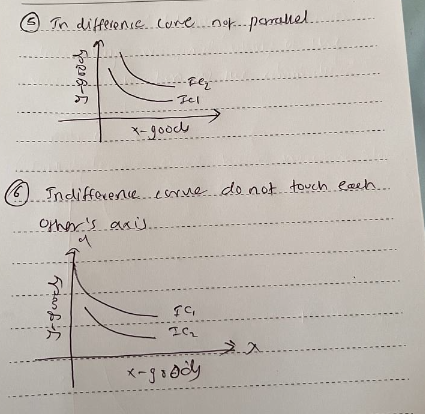 ⑤ Indifference curve not parallel
Y-good
IC2
IC1
x-goods
⑥ Indifference curve do not touch each
other's axis
y
Y-good
IC1
IC2
x
x-goods